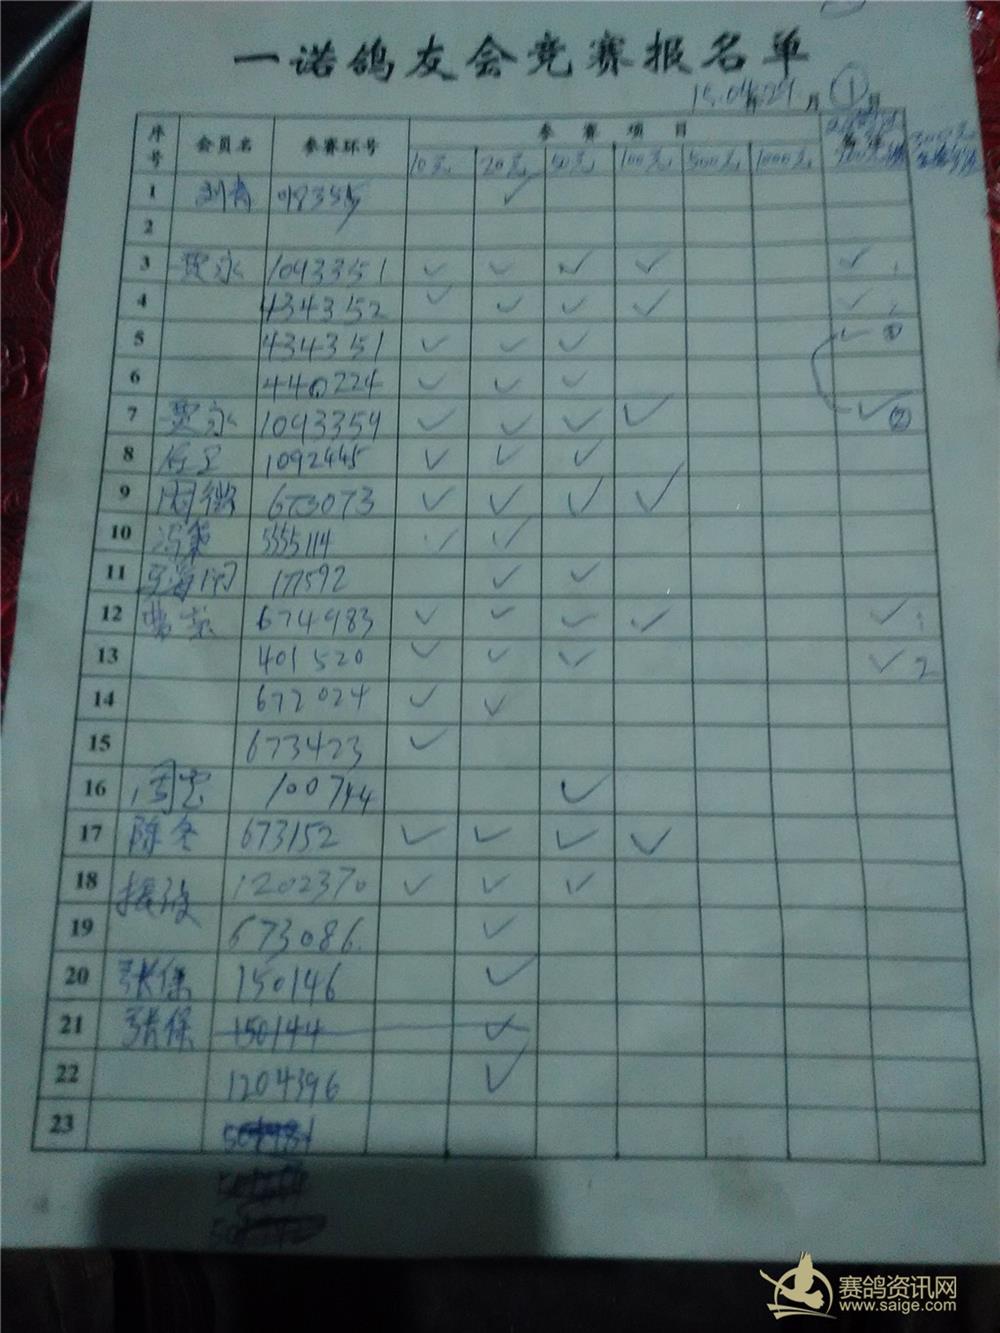 一诺鸽友会竞赛报名单
15.04年29月①日
序号 会员名 参赛环号 参赛项目
10元 20元 50元 100元 500元 1000元
1 ✓
2
3 贾永 1093351 ✓ ✓ ✓ ✓ ✓ 1
4 434352 ✓ ✓ ✓ ✓ ✓
5 434351 ✓ ✓ ✓ ✓ ①
6 440224 ✓ ✓ ✓
7 贾永 1093359 ✓ ✓ ✓ ✓ ✓ ②
8 1092445 ✓ ✓ ✓
9 周微 673073 ✓ ✓ ✓ ✓
10 5555114 ✓ ✓
11 177592 ✓ ✓
12 674983 ✓ ✓ ✓ ✓ ✓
13 401520 ✓ ✓ ✓ ✓ 2
14 672024 ✓ ✓
15 673423 ✓
16 100744 ✓
17 陈冬 673152 ✓ ✓ ✓ ✓
18 1202370 ✓ ✓ ✓
19 673086 ✓
20 张保 150146 ✓
21 张保 150144 ✓
22 1204396 ✓
23
赛鸽资讯网
www.saige.com